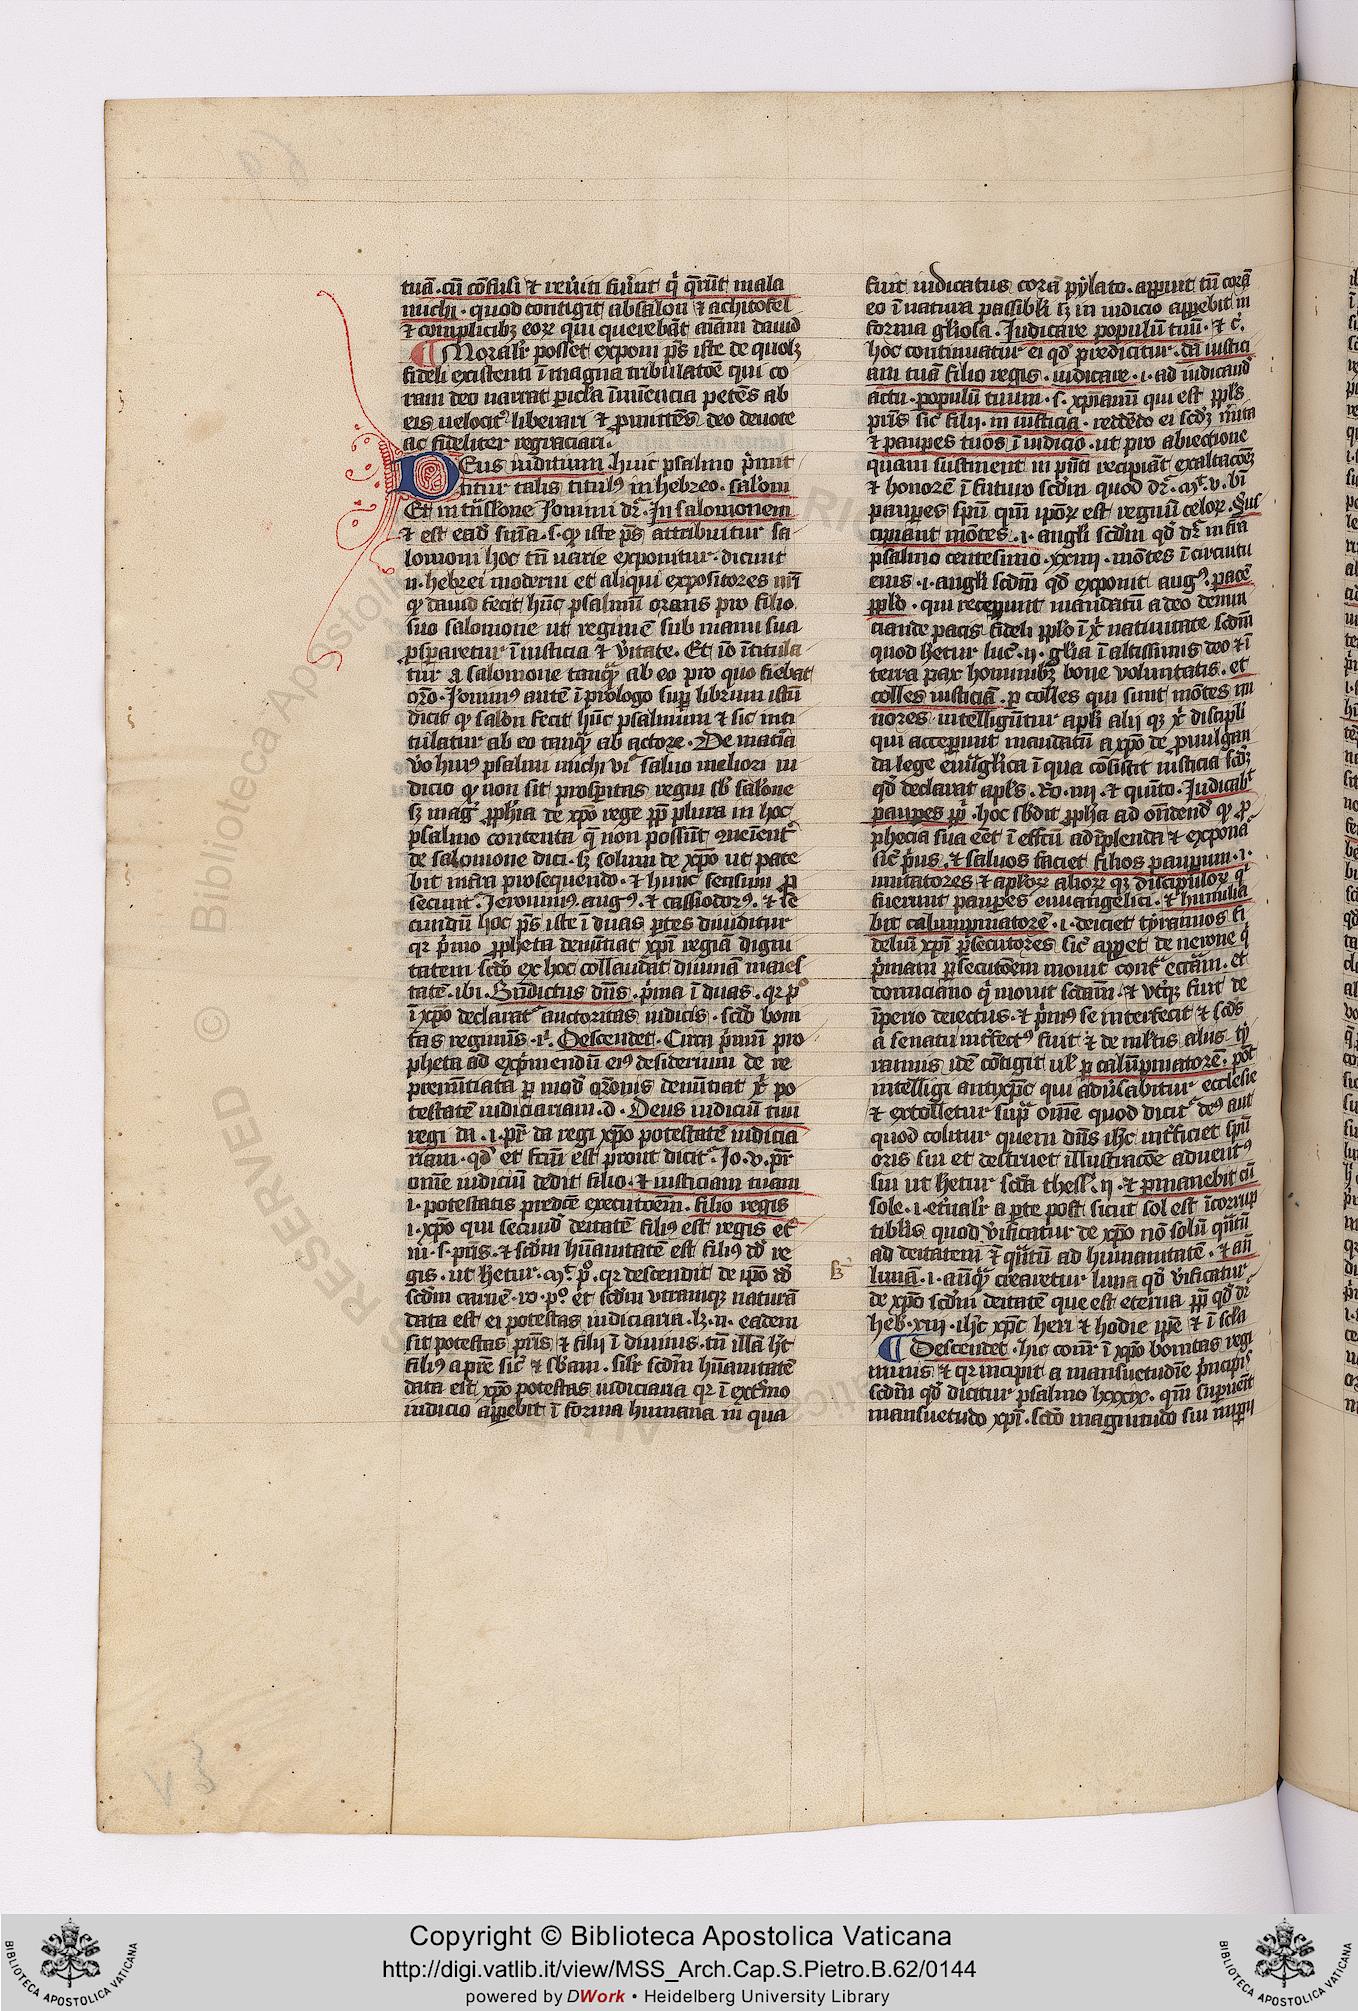 tuā · cū cōfusi ⁊ rev̄iti fuīnt q̇ q̄rūt mala
michi · quod contigit absalon ⁊ achitofel
⁊ complicibꝫ eoꝝ qui querebāt aīam david
¶ Moralit̄ posset exponi p̄s iste de quolꝫ
fideli existenti ī magna tribulatōe qui co
ram deo narrat picl̄a īminencia petēs ab
eis velocit᷑ liberari ⁊ ꝓmittēs deo devote
ac fideliter regraciari ·
Deus iuditium huic psalmo p̄mit
titur talis titulꝰ in hebreo · salom
Et in trāsl̄one Jeronimi dr̄ · In salomonem
⁊ est eadē sn̄ia · s · qꝫ iste p̄s attribuitur sa
lomoni hoc tn̄ varie exponitur · dicunt
n · hebrei moderni et aliqui expositores nr̄i
qꝫ david fecit hūc psalmū orans pro filio
suo salomone ut regimē sub manu sua
ꝓsꝑaretur ī iusticia ⁊ v̄itate · Et iō ītitula
tur a salomone tanqȝ ab eo pro quo fiebat
or̄o · Jeronimꝰ autē ī prologo suꝑ librum istū
dicit qꝫ salon fecit hūc psalmum ⁊ sic inti
tulatur ab eo tanqȝ ab actore · De mat̄ia
v̄o huiꝰ psalmi michi vr̄ salvo meliori iu
dicio qꝫ non sit prosperitas regni sb̄ salōne
sꝫ magꝭ ꝓphīa de xp̄o rege ꝓp̄ plura in hoc
psalmo contenta q̄ non possūt 9veient᷑
de salomone dici · sꝫ solum de xp̄o ut pate
bit infra prosequendo · ⁊ hunc sensum ꝓ
secunt᷑ Jeronimꝰ augꝰ · ⁊ cassiodorꝰ · ⁊ se
cundū hoc p̄s iste ī duas ꝑtes dividitur
qr p̄mo ꝓpheta denūtiat xp̄i regiā digni
tatem scd̄o ex hoc collaudat divinā maies
tatē · ibi · Bn̄dictus dn̄s · p̄ma ī duas · qr pº
ī xp̄o declarat᷑ auctoritas iudicis · scd̄o boni
tas regimīs · ī · Descendet · Circa p̄mū pro
pheta ad exp̄mendū eiꝰ desiderium de re
prenūtiata ꝑ modū or̄onis denūtiat xp̄i po
testatē iudiciariam · d · Deus iudiciū tuū
regi da · i · pr̄ da regi xp̄o potestatē iudicia
riam · qd̄ et fc̄m est prout dicit᷑ · Jo · v · pr̄
omē iudiciū dedit filio · ⁊ iusticiam tuam
i · potestatis predc̄e executōem · filio regis
i · xp̄o qui secund̄ deitatē filiꝰ est regis et̄
ni · s · pr̄is · ⁊ scd̄m hūanitatē est filiꝰ dd̄ re
gis · ut h̄etur · m̄t · pº · qr descendit de ip̄o dd̄
scd̄m carnē · ro · pº · et scd̄m utramqꝫ naturā
data est ei potestas iudiciaria · lꝫ · n · eadem
sit potestas pr̄is ⁊ filii ī divinis · tn̄ illā h̄t
filiꝰ a pr̄e sic̄ ⁊ sb̄am · sil̄r scd̄m hūanitatē
data est xp̄o potestas iudiciaria qr ī ext̄mo
iudicio appēbit ī forma humana in qua
fuit iudicatus corā pylato · apparuit tn̄ corā
eo ī natura passibili sꝫ in iudicio appēbit in
forma gl̄iosa · Judicare populū tuū · ⁊ c̄ ·
hoc continuatur ei qd̄ predicitur · da iustici
am tuā filio regis · iudicare · i · ad iudicand̄
actu · populū tuum · s · xp̄ianū qui est ppl̄s
pr̄is sic̄ filii · in iusticia · reddēdo ei scd̄ꝫ m̄ita
⁊ pauꝑes tuos ī iudicio · ut pro abiectione
quam sustinent in pn̄ti recipiāt exaltacōeꝫ
⁊ honorē ī futuro scd̄m quod dr̄ · m̄t · v · bi
pauꝑes spū qm̄ ip̄oꝝ est regnū celoꝝ · Sus
cipiant mōtes · i · angeli scd̄m qd̄ dr̄ infra
psalmo centesimo · xxiiii · mōtes ī circuitu
eius · i · angeli scd̄m qd̄ exponit augꝰ · pacē
ppl̄o · qui receꝑunt mandatū a deo denun
ciande pacis fideli ppl̄o ī xp̄i nativitate scd̄m
quod h̄etur luc̄ · ii · gl̄ia ī altissimis deo ⁊ ī
terra pax hominibꝫ bone voluntatis · et
colles iusticiā · ꝑ colles qui sunt mōtes mi
nores intelligūtur apl̄i alii qꝫ xp̄i discipli
qui acceꝑunt mandatū a xp̄o de ꝓmulgan
da lege evāgl̄ica ī qua cōsistit iusticia scd̄ꝫ
qd̄ declarat apl̄s · Ro · iiii · ⁊ quīto · Judicabit
pauꝑes pp̄li · hoc sb̄dit ꝓph̄a ad on̄dend̄ qꝫ ꝓ
phecia sua eēt ī effc̄tū adīplenda ⁊ expona
sic̄ p̄us · ⁊ salvos faciet filios pauperum · i ·
imitatores ⁊ apl̄oꝝ alioꝝ qꝫ discipuloꝝ qi
fuerunt pauꝑes evvangelici · ⁊ humilia
bit calumpniatorē · i · deiciet tyrannos fi
deliū xp̄i ꝑsecutores sic̄ apꝑet de nerone q̇
p̄mam ꝑsecutōem movit cont̄ eccl̄iam · et
domiciano q̇ movit scd̄am · ⁊ utqꝫ fuit de
īperio deiectus · ⁊ p̄mꝰ se interfecit ⁊ scd̄s
a senatu int̄fectꝰ fuit ⁊ de ml̄tis aliis ty
rannis idē cōtigit ul̄ ꝑ calūpniatorē · pōt
intelligi antixp̄c qui adūsabitur ecclesie
⁊ extolletur supra omē quod dicit᷑ deꝰ aut
quod colitur quem dn̄s ih̄c int̄ficiet spū
oris sui et destruet illustracōe adventꝰ
sui ut h̄etur scd̄a thess̄ · ii · ⁊ ꝑmanebit cū
sole · i · et̄nalit̄ a ꝑte post sicut sol est īcorrup
tiblis quod v̄ificatur de xp̄o nō solū qn̄tū
ad deitatem s̄ꝫ qn̄tū ad humanitatē · ⁊ an̄
lunā · i · an̄qȝ crearetur luna qd̄ v̄ificatur
de xp̄o scd̄m deitatem que est eterna ꝓp̄ qd̄ dr̄
heb · xiii · ih̄c xp̄c heri ⁊ hodie ip̄e ⁊ ī scl̄a
¶ Descendet · hic com̄r ī xp̄o bonitas regi
minis ⁊ qr incipit a mansuetudīe p̄ncipis
scd̄m qd̄ dicitur psalmo lxxxix · qm̄ suꝑvēit
mansuetudo xp̄i · scd̄o magnitudo sui imꝑii